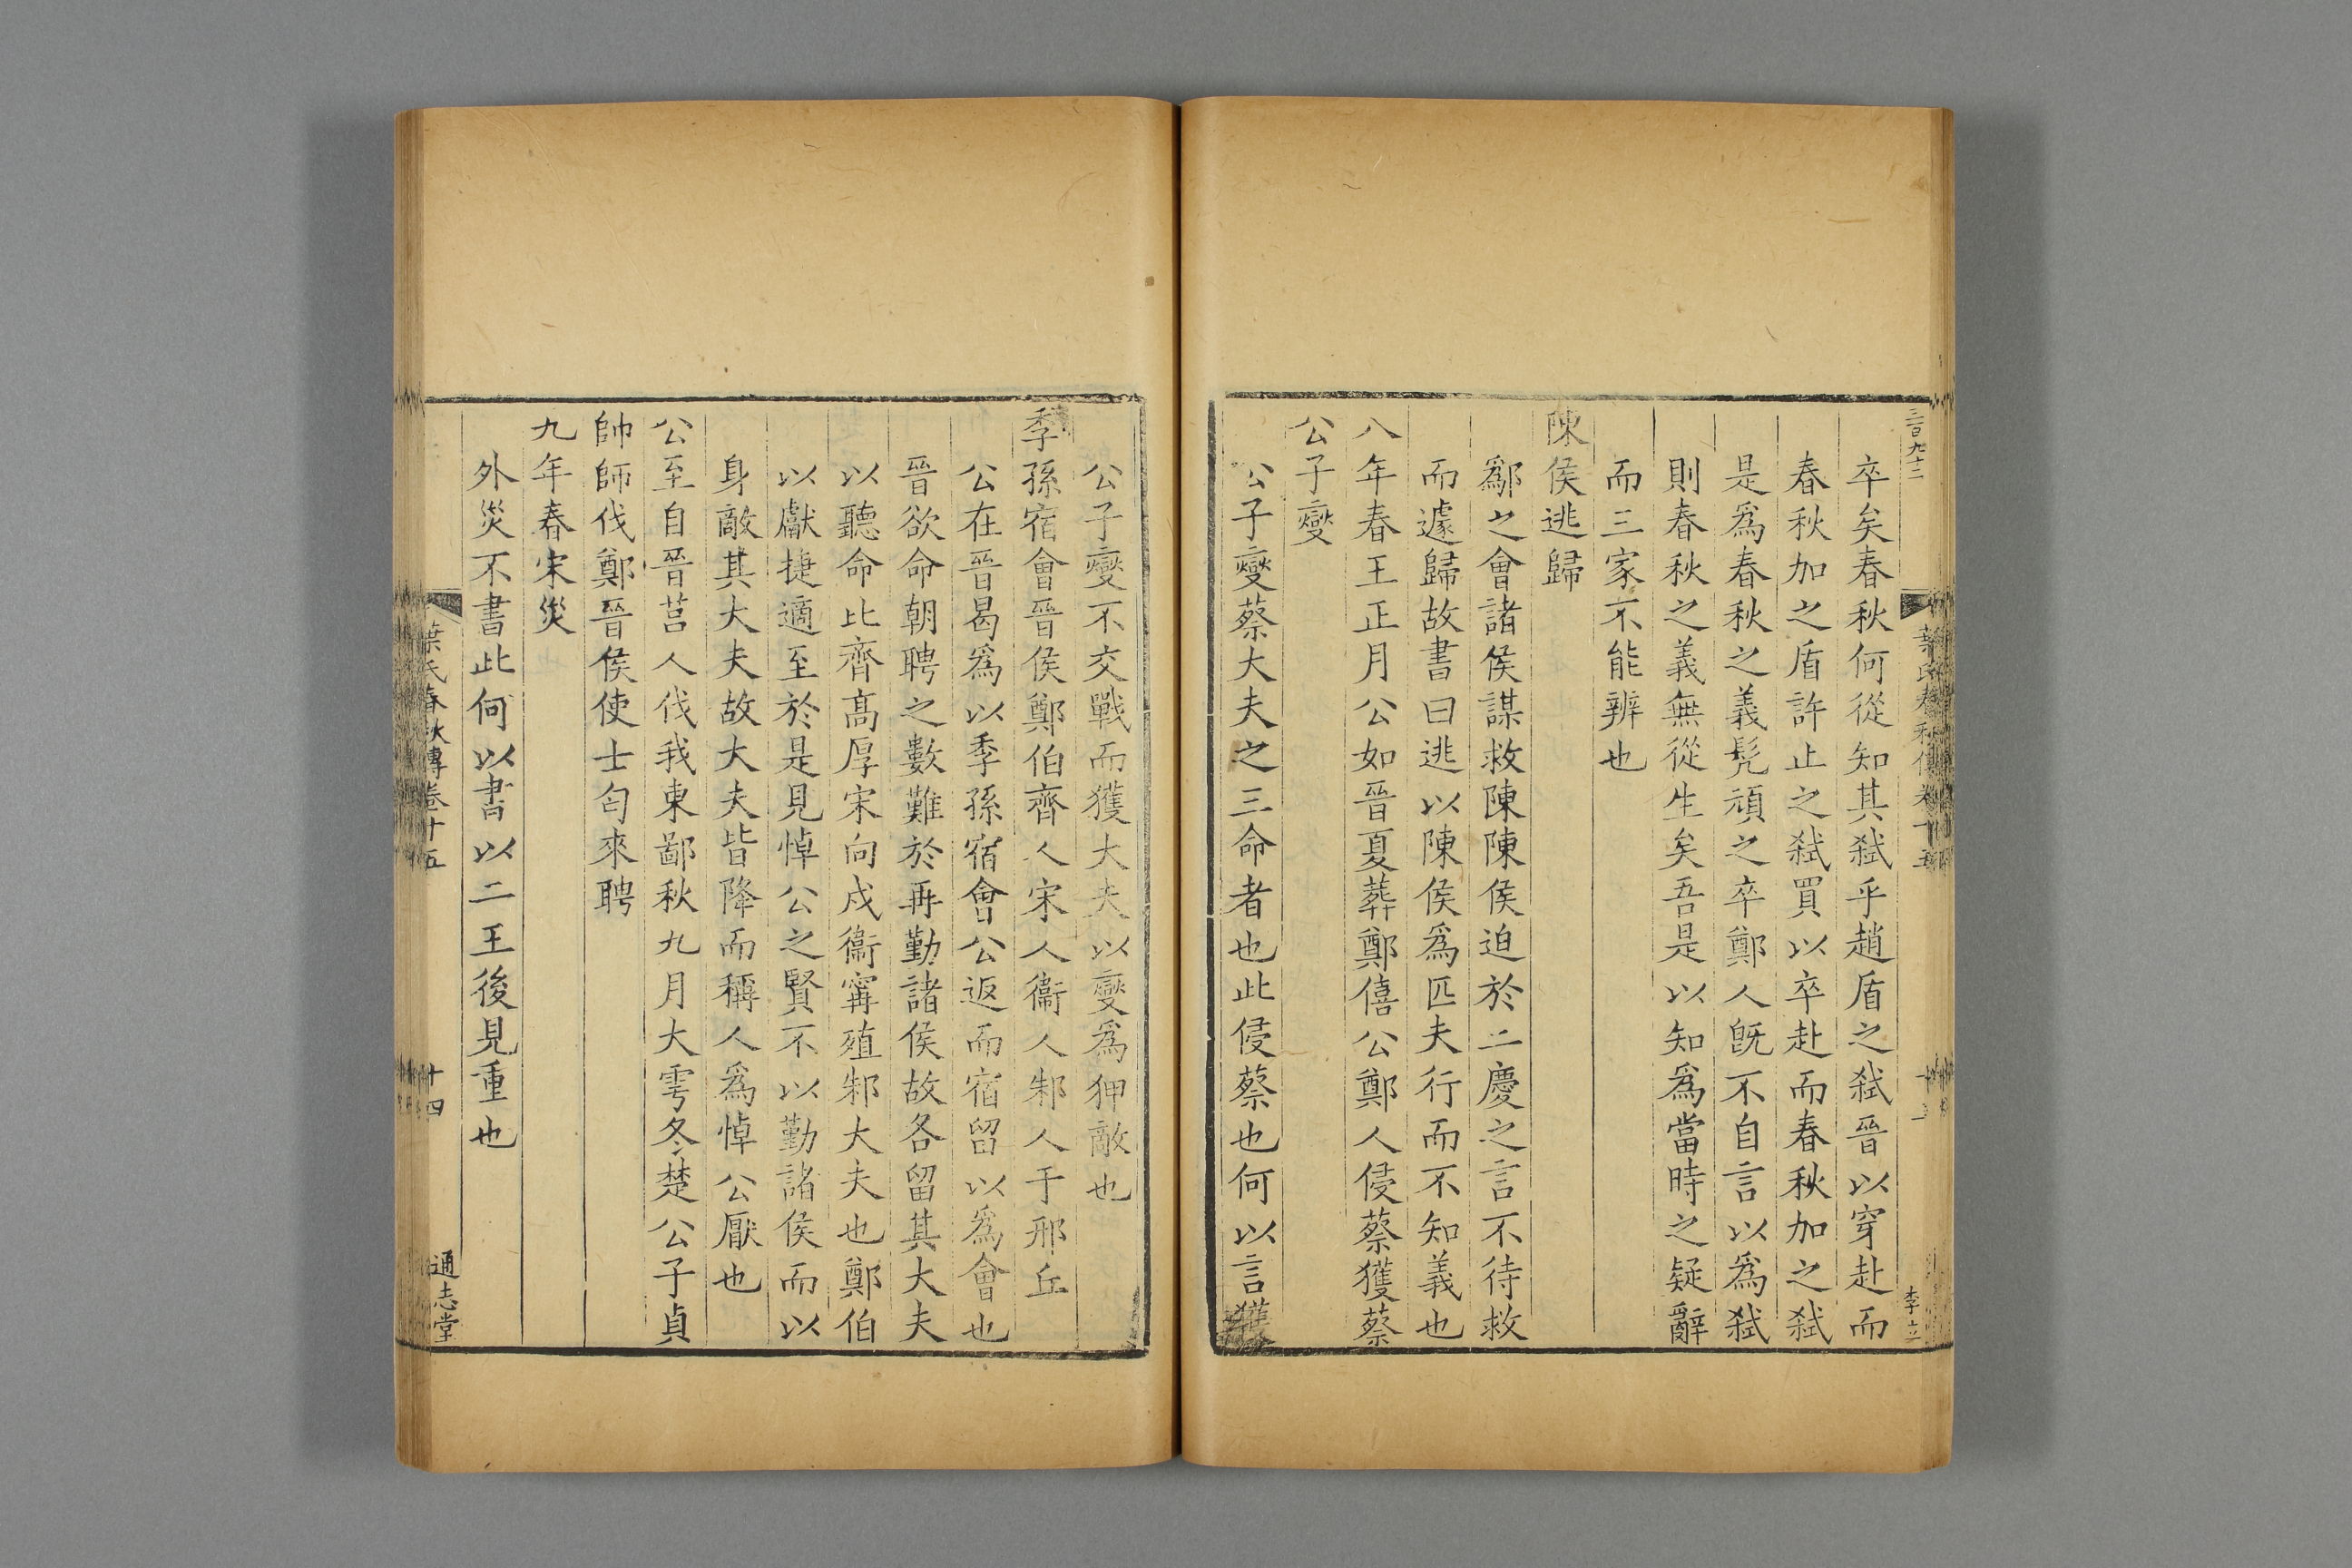 三百九十二
卒矣春秋何從知其弑乎趙盾之弑晉以穿赴而
春秋加之盾許止之弑買以卒赴而春秋加之弑
是爲春秋之義髡頑之卒鄭人旣不自言以爲弑
則春秋之義無從生矣吾是以知爲當時之疑辭
而三家不能辨也
陳侯逃歸
鄬之會諸侯謀救陳陳侯迫於二慶之言不待救
而遽歸故書曰逃以陳侯爲匹夫行而不知義也
八年春王正月公如晉夏葬鄭僖公鄭人侵蔡獲蔡
公子燮
公子燮蔡大夫之三命者也此侵蔡也何以言獲
葉氏春秋傳卷十五
李立
公子燮不交戰而獲大夫以燮爲狎敵也
季孫宿會晉侯鄭伯齊人宋人衞人邾人于邢丘
公在晉曷爲以季孫宿會公返而宿留以爲會也
晉欲命朝聘之數難於再勤諸侯故各留其大夫
以聽命比齊髙厚宋向戌衞甯殖邾大夫也鄭伯
以獻捷適至於是見悼公之賢不以勤諸侯而以
身敵其大夫故大夫皆降而稱人爲悼公厭也
公至自晉莒人伐我東鄙秋九月大雩冬楚公子貞
帥師伐鄭晉侯使士匄來聘
九年春宋災
外災不書此何以書以二王後見重也
葉氏春秋傳卷十五
十四
通志堂